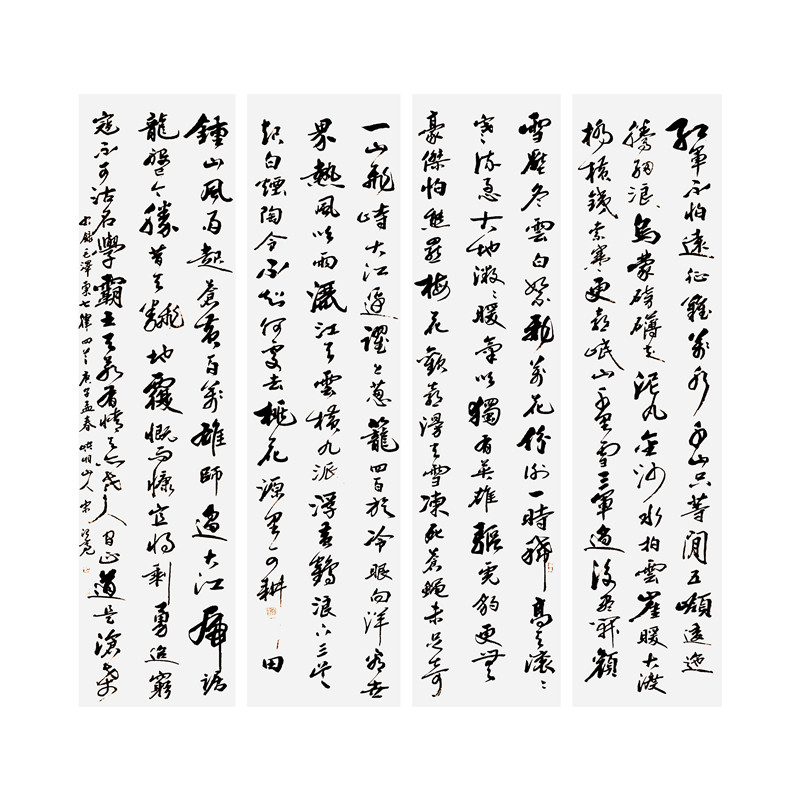 紅軍不怕遠征難萬水千山只等閒五嶺逶迤
騰細浪烏蒙磅礴走泥丸金沙水拍雲崖暖大渡
橋橫鐵索寒更喜岷山千里雪三軍過後盡開顏
雪壓冬雲白絮飛萬花紛謝一時稀高天滾々
寒流急大地微々暖氣吹獨有英雄驅虎豹更無
豪傑怕熊羆梅花歡喜漫天雪凍死蒼蠅未足奇
一山飛峙大江邊躍上蔥蘢四百旋冷眼向洋看世
界熱風吹雨灑江天雲橫九派浮黃鶴浪下三吳
起白煙陶令不知何處去桃花源里可耕田
鍾山風雨起蒼黃百萬雄師過大江虎踞
龍盤今勝昔天翻地覆慨而慷宜將剩勇追窮
寇不可沽名學霸王天若有情天亦老人間正道是滄桑
錄毛澤東七律四首庚子孟春山人宋